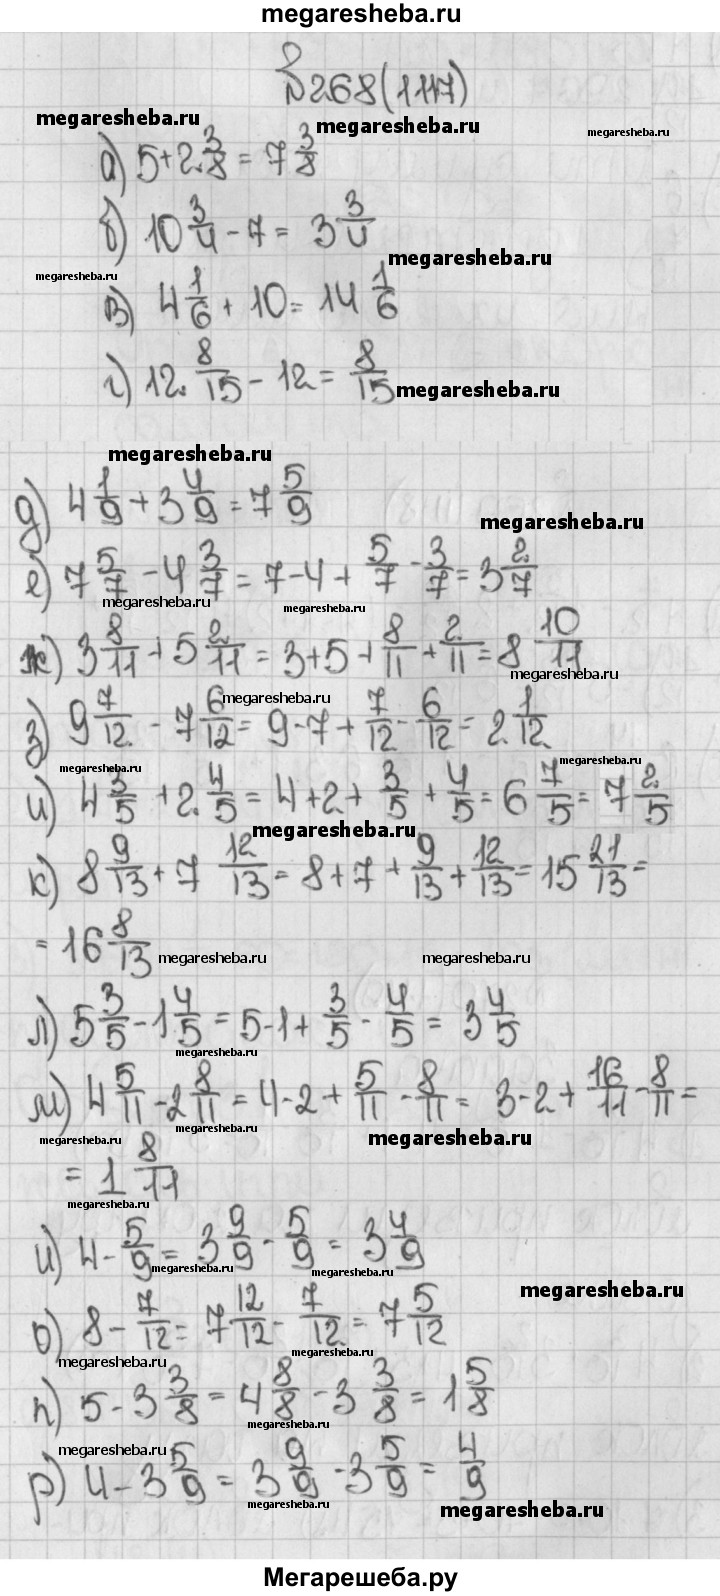 megaresheba.ru
№268(1117)
megaresheba.ru
megaresheba.ru
megaresheba.ru
а) 5+2 3/8 = 7 3/8
б) 10 3/4 - 7 = 3 3/4
megaresheba.ru
megaresheba.ru
в) 4 1/6 + 10 = 14 1/6
г) 12 8/15 - 12 = 8/15
megaresheba.ru
megaresheba.ru
д) 4 1/9 + 3 4/9 = 7 5/9
megaresheba.ru
е) 7 5/7 - 4 3/7 = 7-4 + 5/7 - 3/7 = 3 2/7
megaresheba.ru
megaresheba.ru
ж) 3 8/11 + 5 2/11 = 3+5+ 8/11 + 2/11 = 8 10/11
megaresheba.ru
megaresheba.ru
з) 9 7/12 - 7 6/12 = 9-7 + 7/12 - 6/12 = 2 1/12
megaresheba.ru
megaresheba.ru
и) 4 3/5 + 2 4/5 = 4+2+ 3/5 + 4/5 = 6 7/5 = 7 2/5
megaresheba.ru
к) 8 9/13 + 7 12/13 = 8+7+ 9/13 + 12/13 = 15 21/13 =
= 16 8/13
megaresheba.ru
megaresheba.ru
л) 5 3/5 - 1 4/5 = 5-1+ 3/5 - 4/5 = 3 4/5
megaresheba.ru
м) 4 5/11 - 2 8/11 = 4-2+ 5/11 - 8/11 = 3-2+ 16/11 - 8/11 =
megaresheba.ru
megaresheba.ru
megaresheba.ru
= 1 8/11
megaresheba.ru
и) 4 - 5/9 = 3 9/9 - 5/9 = 3 4/9
megaresheba.ru
megaresheba.ru
megaresheba.ru
о) 8 - 7/12 = 7 12/12 - 7/12 = 7 5/12
megaresheba.ru
megaresheba.ru
п) 5 - 3 3/8 = 4 8/8 - 3 3/8 = 1 5/8
megaresheba.ru
megaresheba.ru
р) 4 - 3 5/9 = 3 9/9 - 3 5/9 = 4/9
megaresheba.ru
megaresheba.ru
Мегарешеба.ру